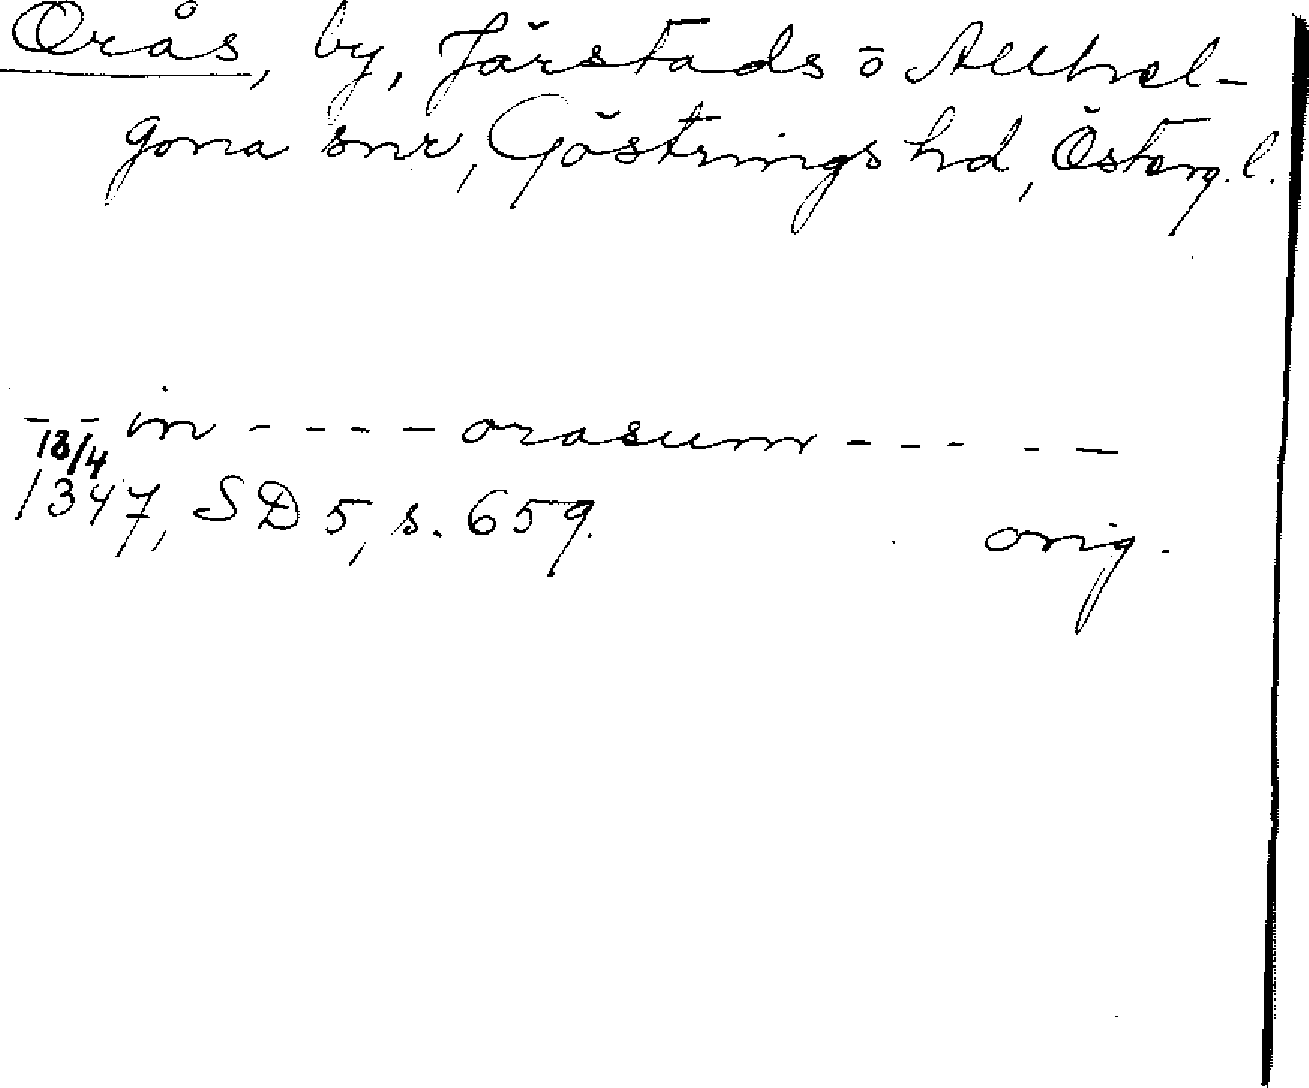 Orås, by, Järstads o Allhel-
gona snr, Göstrings hd, Österg. l.
- - in - - - - orasum - - - - -
18/4
1347, SD 5, s. 659. orig.